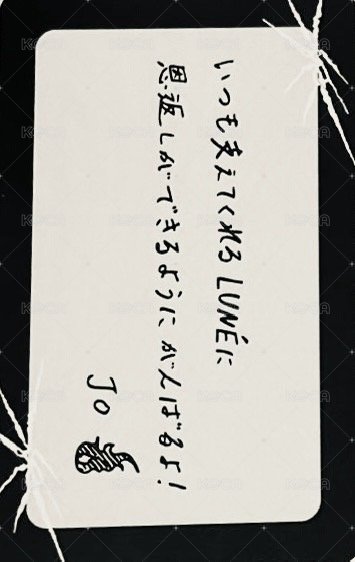 いつも支えてくれるLUNÉに
恩返しができるようにがんばるよ!
JO